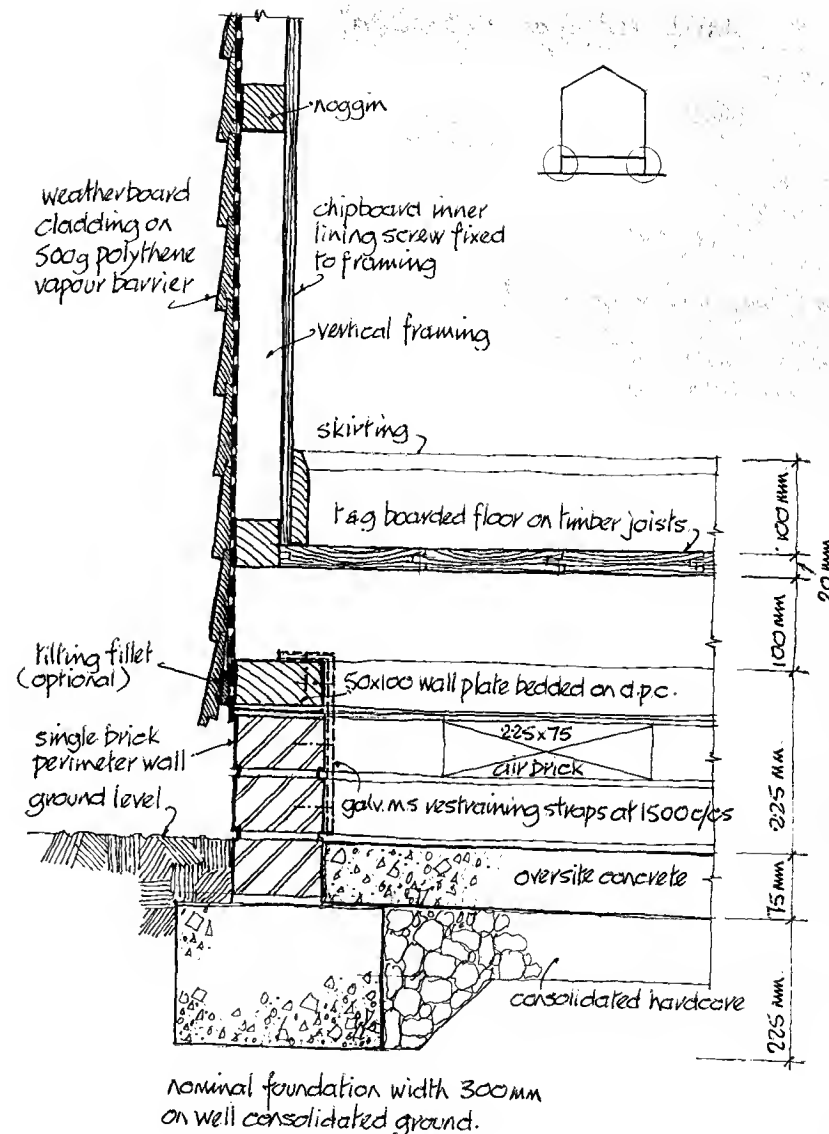 noggin
weatherboard
cladding on
500g polythene
vapour barrier
chipboard inner
lining screw fixed
to framing
vertical framing
skirting
t&g boarded floor on timber joists
100mm
20mm
100mm
tilting fillet
(optional)
50x100 wall plate bedded on d.p.c.
single brick
perimeter wall
225x75
air brick
ground level
galv. m s restraining straps at 1500 c/cs
225 mm
oversite concrete
75mm
consolidated hardcore
225mm
nominal foundation width 300mm
on well consolidated ground.